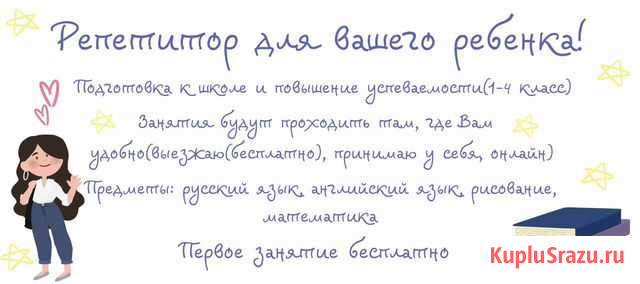 Репетитор для вашего ребенка!
Подготовка к школе и повышение успеваемости(1-4 класс)
Занятия будут проходить там, где Вам
удобно(выезжаю(бесплатно), принимаю у себя, онлайн)
Предметы: русский язык, английский язык, рисование,
математика
Первое занятие бесплатно
KupluSrazu.ru